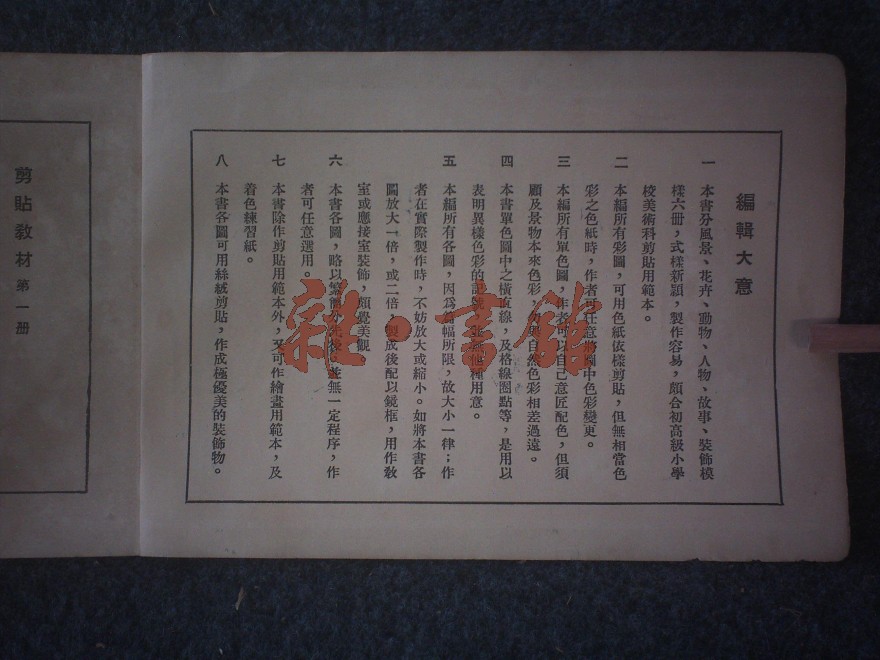 編輯大意
一 本書分風景、花卉、動物、人物、故事、裝飾模
樣六册，式樣新穎，製作容易，頗合初高級小學
校美術科剪貼用範本。
二 本編所有彩圖，可用色紙依樣剪貼，但無相當色
彩之色紙時，作者可任意將圖中色彩變更。
三 本編所有單色圖，作者可以自己意匠配色，但須
顧及景物本來色彩，勿與自然色彩相差過遠。
四 本書單色圖中之橫直線，及格線圈點等，是用以
表明異樣色彩的記號，並無他種用意。
五 本編所有各圖，因爲篇幅所限，故大小一律；作
者在實際製作時，不妨放大或縮小。如將本書各
圖放大一倍，或二倍，製成後配以鏡框，用作教
室或應接室裝飾，頗覺美觀
六 本書各圖，略以繁簡分先後，並無一定程序，作
者可任意選用。
七 本書除作剪貼用範本外，又可作繪畫用範本，及
着色練習紙。
八 本書各圖可用絲絨剪貼，作成極優美的裝飾物。
剪貼教材 第一册
雜·書館